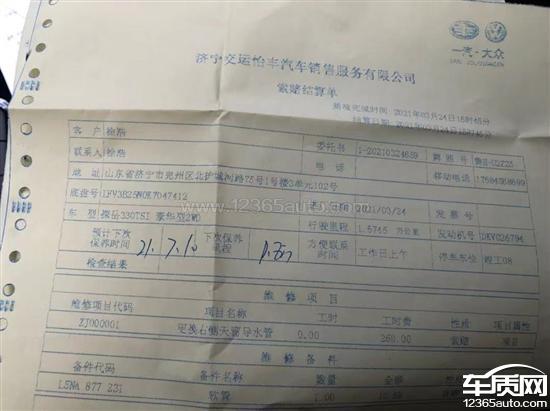 一汽·大众
FAW-VOLKSWAGEN
济宁交运怡丰汽车销售服务有限公司
索赔结算单
预计完成时间: 2021年03月24日15时45分
结算日期: 2021年03月24日
客户 徐浩
委托书 1-20210324659
牌照号
联系人 徐浩
电话
移动电话
地址 山东省济宁市兖州区北护城河路75号1号楼3单元102号
底盘号 LFV3B25N0K7047412
2021/03/24
发票号
车型 探岳330TSI 豪华型2WD
行驶里程 1.5745 万公里
发动机号 DKV026794
预计下次保养时间 21.7.10
下次保养里程
方便联系时间 工作日上午
停车车位 竣工08
检查结果
www.12365auto.com
维修项目
维修项目代码 项目名称 工时 工时费 性质 项目属性
ZJ000001 更换右侧天窗导水管 0.00 260.00 索赔 项目
维修备件
备件代码 备件名称 数量 金额 性质
L5NA 877 231 软管 1.00
车质网
www.12365auto.com